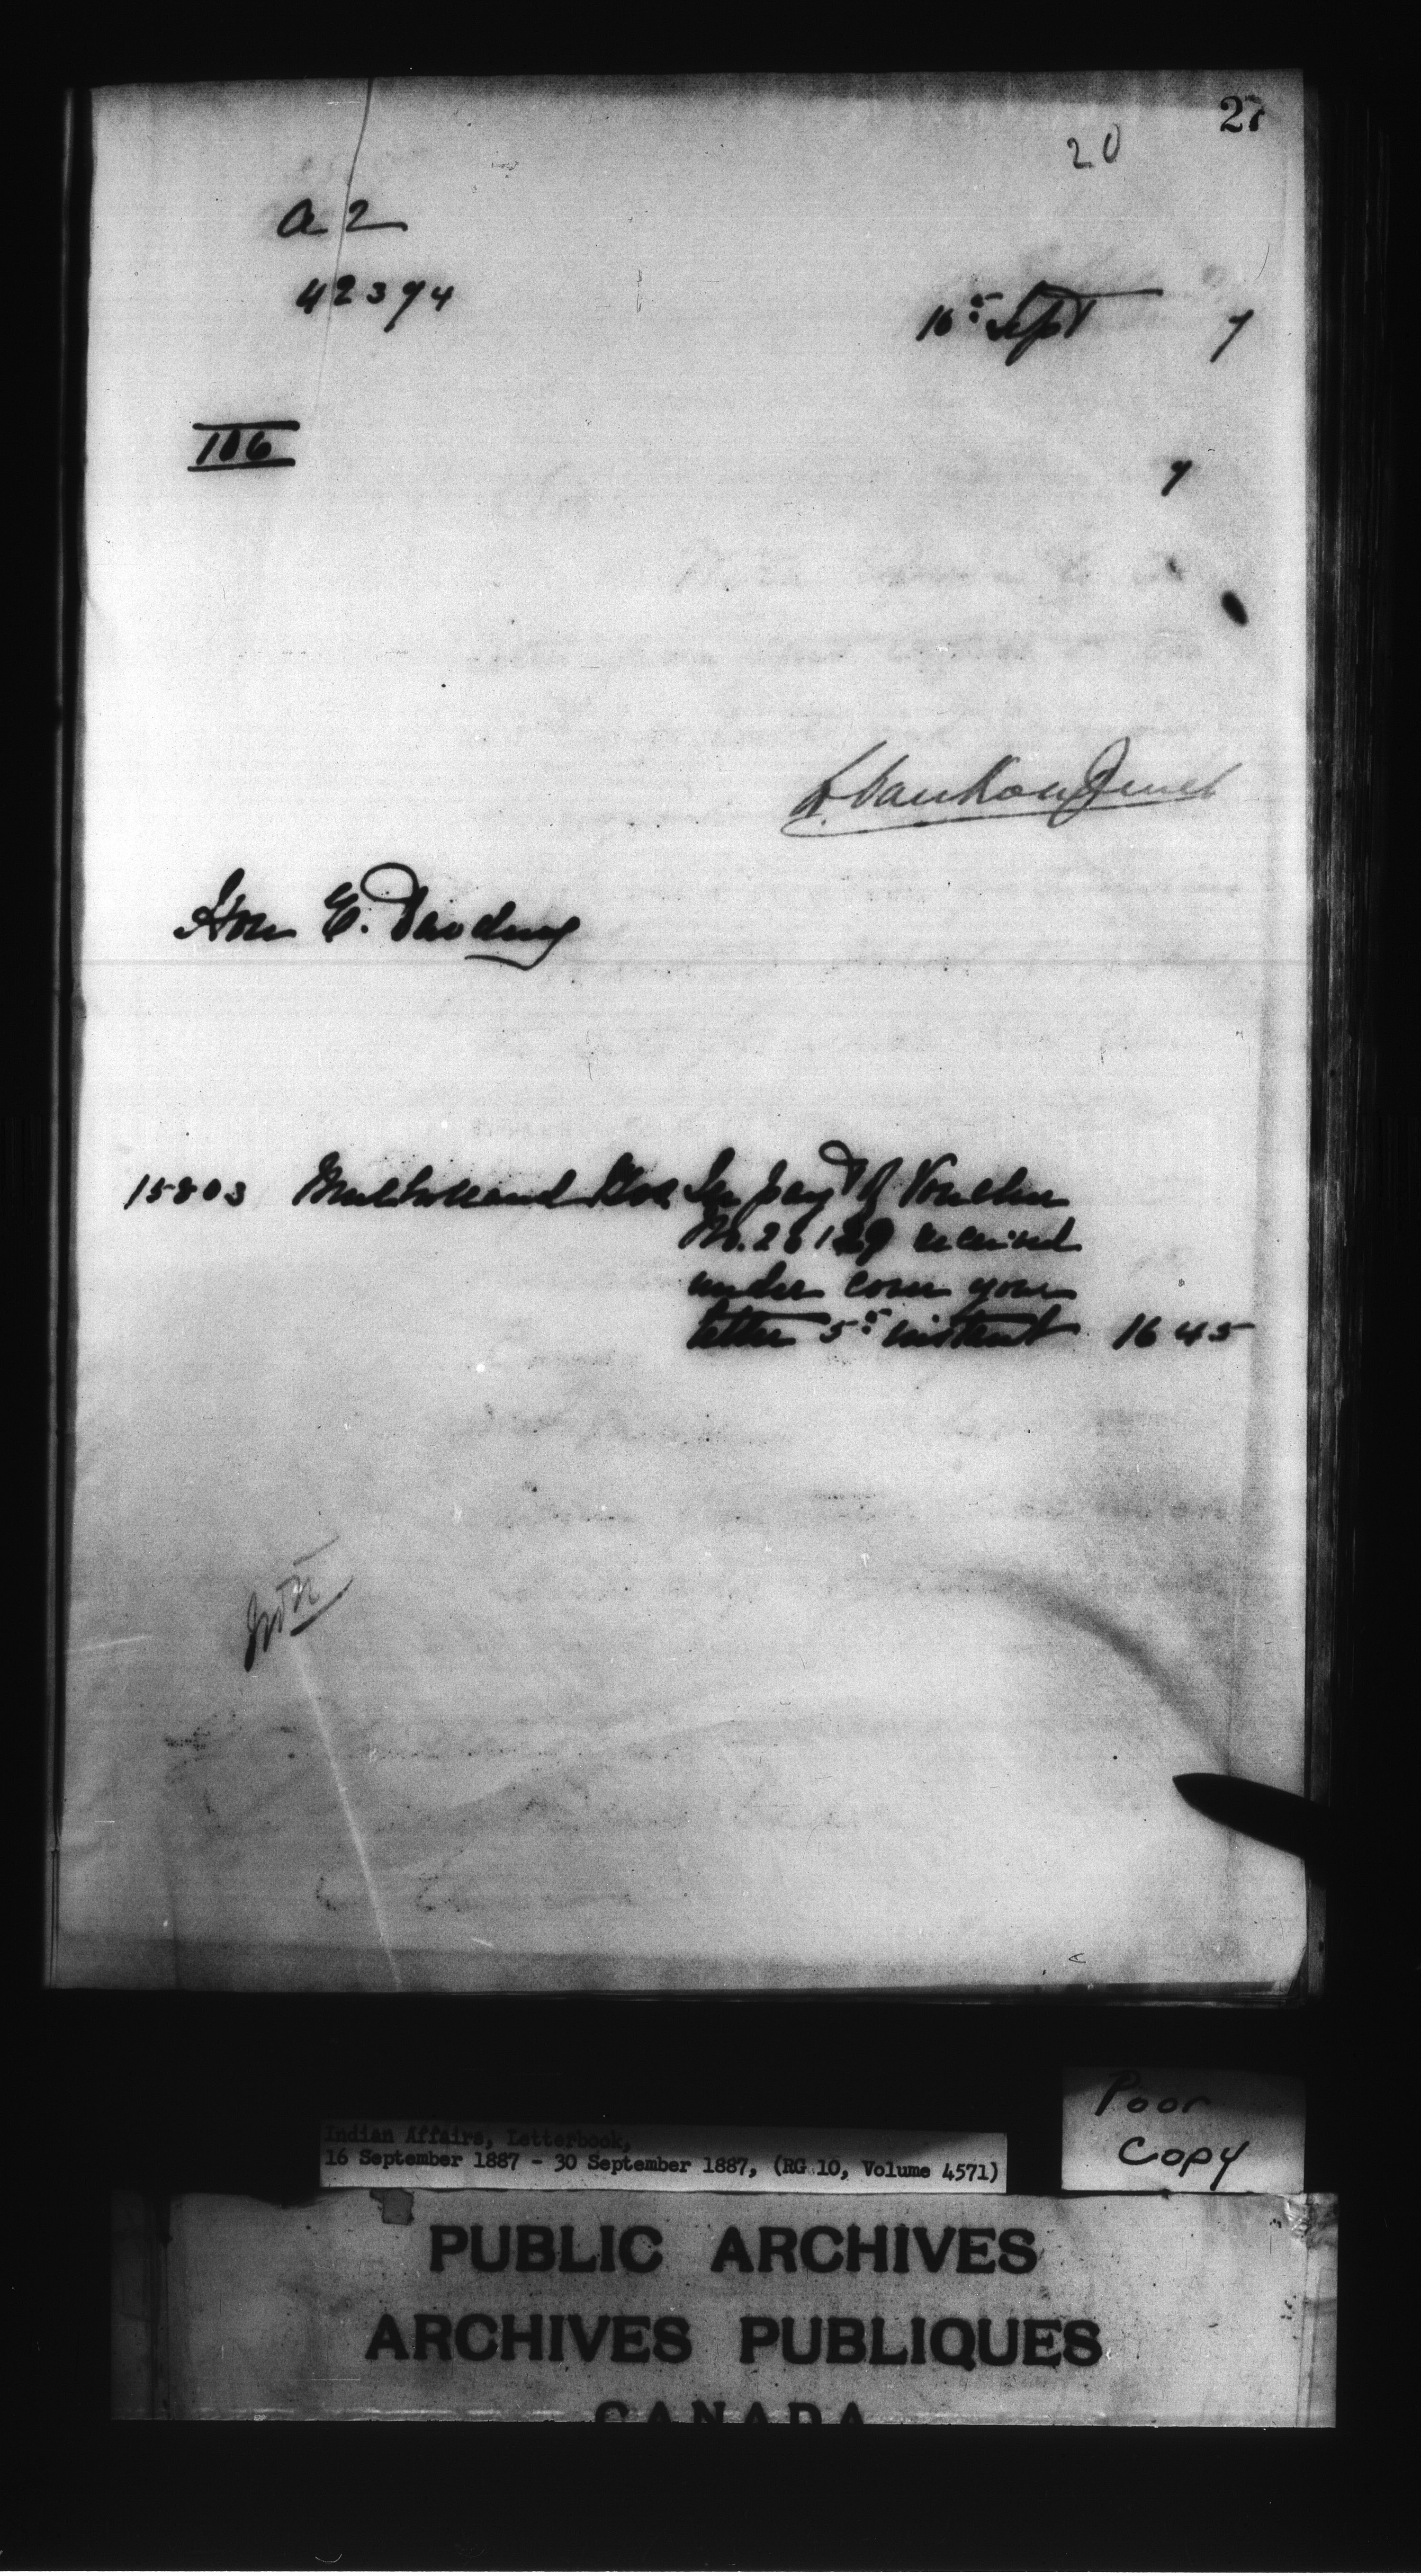 27
20
a 2
42374
16th Sept 7
106
7
L. Vankoughnet
Hon E. Dewdney
15803 Mulholland Bros In payt of Voucher
No. 26129 received
under cover your
letter 5th instant 16 45
Indian Affairs, Letterbook,
16 September 1887 - 30 September 1887, (RG 10, Volume 4571)
Poor
Copy
PUBLIC ARCHIVES
ARCHIVES PUBLIQUES
CANADA